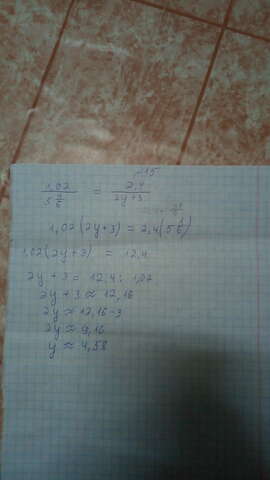 №15
1,02 / 5 1/6 = 2,4 / 2y+3
1,02(2y+3) = 2,4(5 1/6)
1,02(2y+3) = 12,4
2y+3 = 12,4 : 1,02
2y+3 ≈ 12,16
2y ≈ 12,16-3
2y ≈ 9,16
y ≈ 4,58